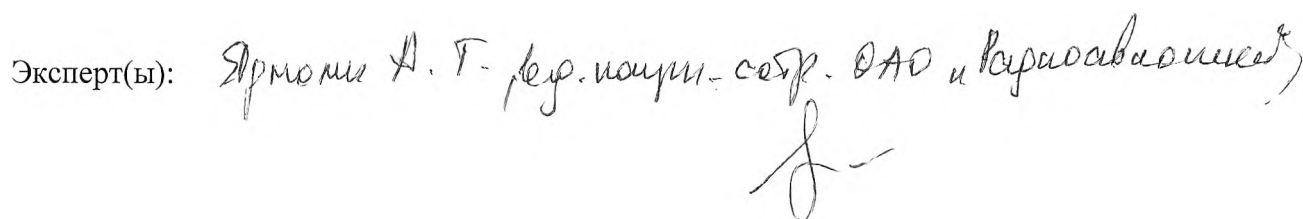 Эксперт(ы): А. Г. вед. научн. сотр. ОАО „Радиоавионика”,